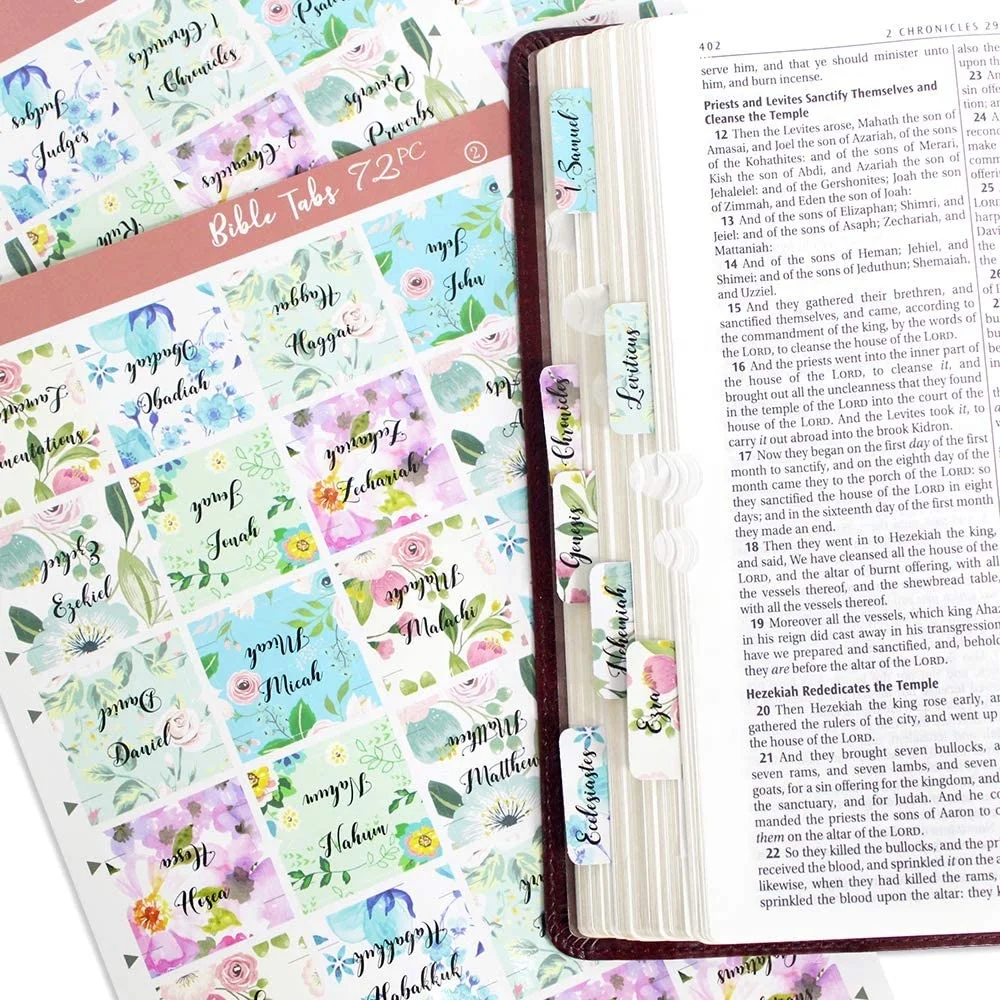 Judges
Judges
1 Chronicles
1 Chronicles
Proverbs
Proverbs
2 Chronicles
Ruth
Bible Tabs 72PC
2
Obadiah
Obadiah
Haggai
Haggai
John
John
Acts
Jonah
Jonah
Zechariah
Zechariah
Ezekiel
Ezekiel
Micah
Micah
Malachi
Malachi
Daniel
Daniel
Nahum
Nahum
Matthew
Matthew
Hosea
Hosea
Habakkuk
Habakkuk
1 Samuel
Leviticus
Chronicles
Genesis
Nehemiah
Ezra
Ecclesiastes
402
2 CHRONICLES 29
serve him, and that ye should minister unto
him, and burn incense.
Priests and Levites Sanctify Themselves and
Cleanse the Temple
12 Then the Levites arose, Mahath the son of
Amasai, and Joel the son of Azariah, of the sons
of the Kohathites: and of the sons of Merari,
Kish the son of Abdi, and Azariah the son of
Jehalelel: and of the Gershonites; Joah the son
of Zimmah, and Eden the son of Joah:
13 And of the sons of Elizaphan; Shimri, and
Jeiel: and of the sons of Asaph; Zechariah, and
Mattaniah:
14 And of the sons of Heman; Jehiel, and
Shimei: and of the sons of Jeduthun; Shemaiah,
and Uzziel.
15 And they gathered their brethren, and
sanctified themselves, and came, according to
the commandment of the king, by the words of
the LORD, to cleanse the house of the LORD.
16 And the priests went into the inner part of
the house of the LORD, to cleanse it, and
brought out all the uncleanness that they found
in the temple of the LORD into the court of the
house of the LORD. And the Levites took it, to
carry it out abroad into the brook Kidron.
17 Now they began on the first day of the first
month to sanctify, and on the eighth day of the
month came they to the porch of the LORD: so
they sanctified the house of the LORD in eight
days; and in the sixteenth day of the first month
they made an end.
18 Then they went in to Hezekiah the king,
and said, We have cleansed all the house of the
LORD, and the altar of burnt offering, with all
the vessels thereof, and the shewbread table,
with all the vessels thereof.
19 Moreover all the vessels, which king Ahaz
in his reign did cast away in his transgression,
have we prepared and sanctified, and, behold,
they are before the altar of the LORD.
Hezekiah Rededicates the Temple
20 Then Hezekiah the king rose early, and
gathered the rulers of the city, and went up
the house of the LORD.
21 And they brought seven bullocks, and
seven rams, and seven lambs, and seven
goats, for a sin offering for the kingdom, and
the sanctuary, and for Judah. And he co
manded the priests the sons of Aaron to o
them on the altar of the LORD.
22 So they killed the bullocks, and the pri
received the blood, and sprinkled it on the a
likewise, when they had killed the rams,
sprinkled the blood upon the altar: they
also the
upon th
23 An
sin offe
24
25
26